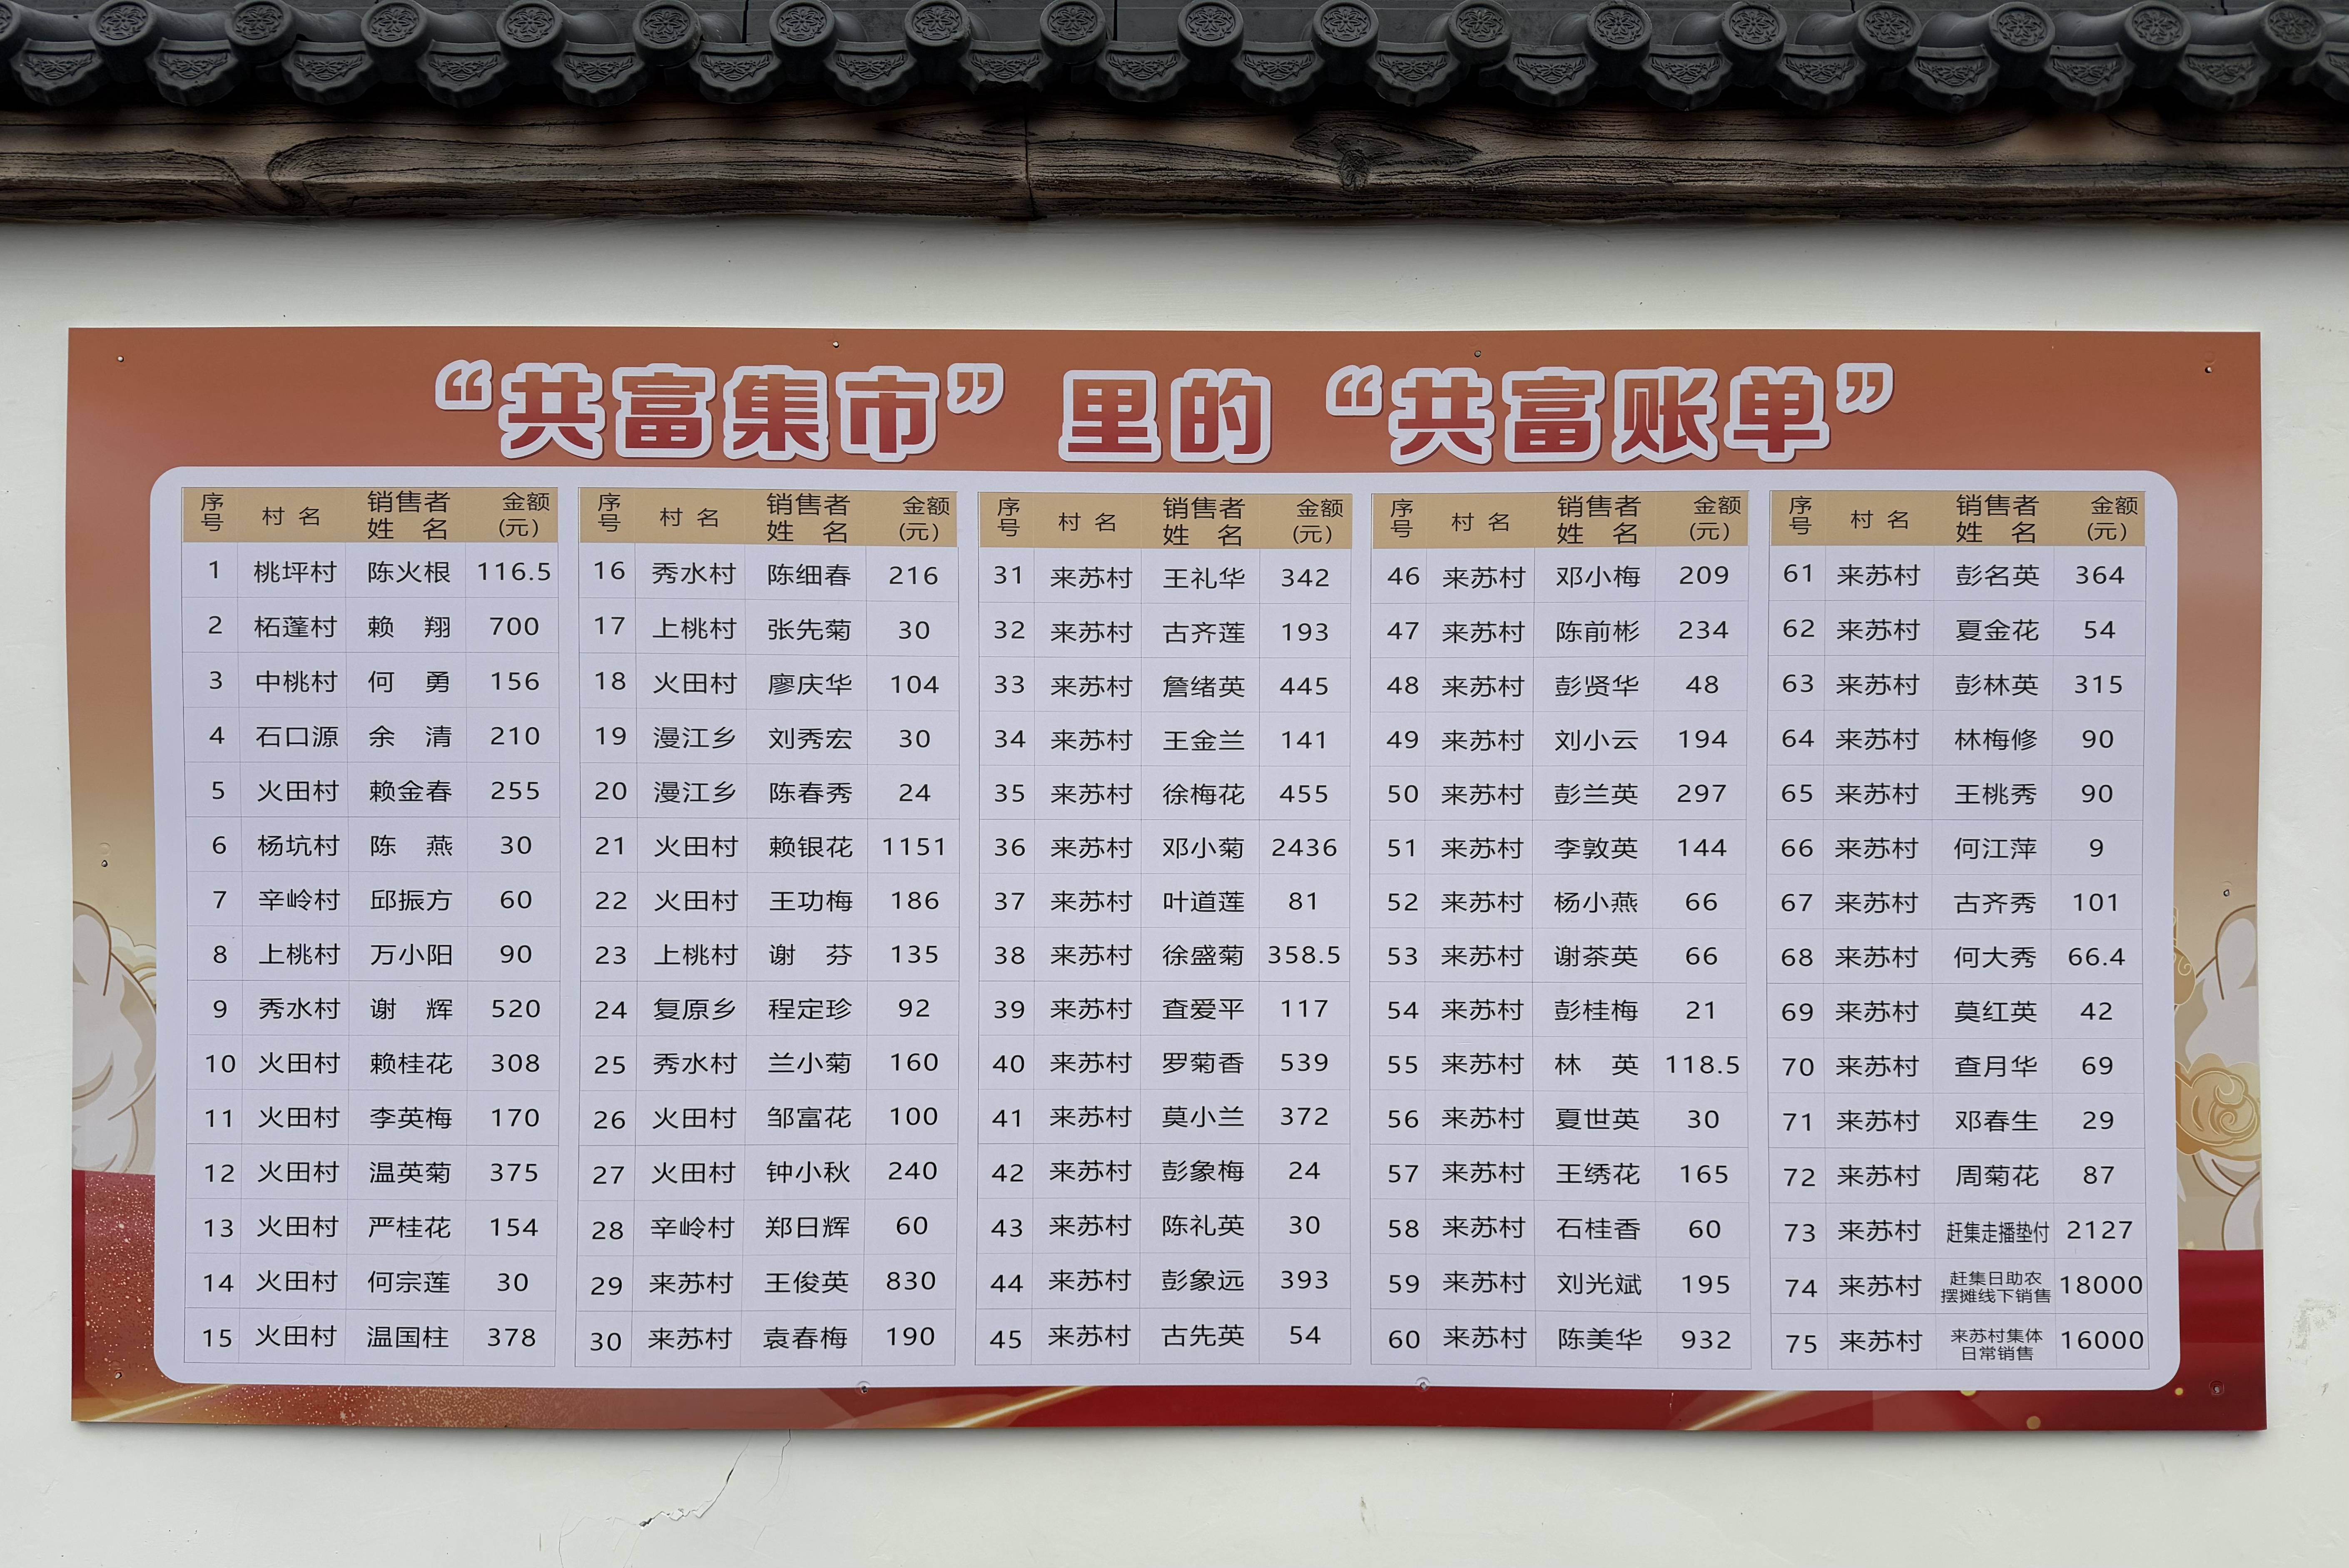 “共富集市” 里的 “共富账单”
序号 村名 销售者姓名 金额(元)
1 桃坪村 陈火根 116.5
2 柘蓬村 赖翔 700
3 中桃村 何勇 156
4 石口源 余清 210
5 火田村 赖金春 255
6 杨坑村 陈燕 30
7 辛岭村 邱振方 60
8 上桃村 万小阳 90
9 秀水村 谢辉 520
10 火田村 赖桂花 308
11 火田村 李英梅 170
12 火田村 温英菊 375
13 火田村 严桂花 154
14 火田村 何宗莲 30
15 火田村 温国柱 378
序号 村名 销售者姓名 金额(元)
16 秀水村 陈细春 216
17 上桃村 张先菊 30
18 火田村 廖庆华 104
19 漫江乡 刘秀宏 30
20 漫江乡 陈春秀 24
21 火田村 赖银花 1151
22 火田村 王功梅 186
23 上桃村 谢芬 135
24 复原乡 程定珍 92
25 秀水村 兰小菊 160
26 火田村 邹富花 100
27 火田村 钟小秋 240
28 辛岭村 郑日辉 60
29 来苏村 王俊英 830
30 来苏村 袁春梅 190
序号 村名 销售者姓名 金额(元)
31 来苏村 王礼华 342
32 来苏村 古齐莲 193
33 来苏村 詹绪英 445
34 来苏村 王金兰 141
35 来苏村 徐梅花 455
36 来苏村 邓小菊 2436
37 来苏村 叶道莲 81
38 来苏村 徐盛菊 358.5
39 来苏村 查爱平 117
40 来苏村 罗菊香 539
41 来苏村 莫小兰 372
42 来苏村 彭象梅 24
43 来苏村 陈礼英 30
44 来苏村 彭象远 393
45 来苏村 古先英 54
序号 村名 销售者姓名 金额(元)
46 来苏村 邓小梅 209
47 来苏村 陈前彬 234
48 来苏村 彭贤华 48
49 来苏村 刘小云 194
50 来苏村 彭兰英 297
51 来苏村 李敦英 144
52 来苏村 杨小燕 66
53 来苏村 谢茶英 66
54 来苏村 彭桂梅 21
55 来苏村 林英 118.5
56 来苏村 夏世英 30
57 来苏村 王绣花 165
58 来苏村 石桂香 60
59 来苏村 刘光斌 195
60 来苏村 陈美华 932
序号 村名 销售者姓名 金额(元)
61 来苏村 彭名英 364
62 来苏村 夏金花 54
63 来苏村 彭林英 315
64 来苏村 林梅修 90
65 来苏村 王桃秀 90
66 来苏村 何江萍 9
67 来苏村 古齐秀 101
68 来苏村 何大秀 66.4
69 来苏村 莫红英 42
70 来苏村 查月华 69
71 来苏村 邓春生 29
72 来苏村 周菊花 87
73 来苏村 赶集走播垫付 2127
74 来苏村 赶集日助农摆摊线下销售 18000
75 来苏村 来苏村集体日常销售 16000